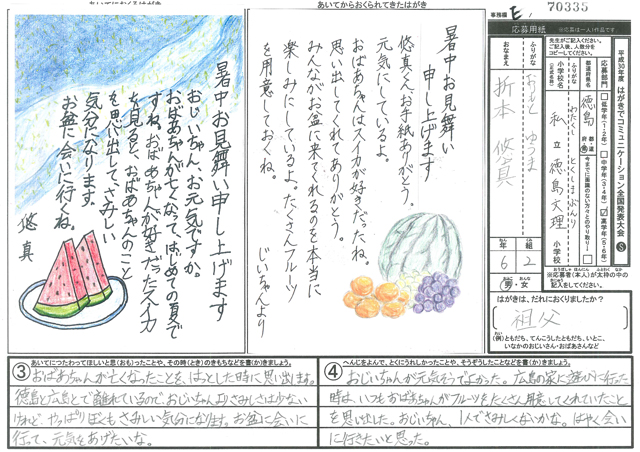 あいてにおくるはがき
暑中お見舞い申し上げます
おじいちゃん、お元気ですか。
おばあちゃんが亡くなって、はじめての夏で
すね。おばあちゃんが好きだったスイカ
を見ると、おばあちゃんのこと
を思い出して、さみしい
気分になります。
お盆に会いに行くね。
悠真
あいてからおくられてきたはがき
暑中お見舞い
申し上げます
悠真くん、お手紙ありがとう。
元気にしているよ。
おばあちゃんはスイカが好きだったね。
思い出してくれてありがとう。
みんながお盆に来てくれるのを本当に
楽しみにしているよ。たくさんフルーツ
を用意しておくね。
じいちゃんより
事務欄 E / 70335
応募用紙
平成30年度 はがきでコミュニケーション全国発表大会 S
先生がご記入ください。
ご記入後、人数分を
コピーしてください。
応募部門
低学年(1・2年)
中学年(3・4年)
高学年(5・6年)
都道府県名
徳島
都・道
府・県
小学校名
(正式名称)
ふりがな
わたくしりつ とくしまぶんり
私立徳島文理
小学校
おなまえ
ふりがな
おりもと ゆうま
折本 悠真
年
6
組
2
男・女
※応募者(本人)が太枠の中の
記入をしてください。
はがきは、だれにおくりましたか?
祖父
(例)ともだち、てんこうしたともだち、いとこ、
いなかのおじいさん・おばあさんなど
③ あいてにつたわってほしいと思(おも)ったことや、その時(とき)のきもちなどを書(か)きましょう。
おばあちゃんが亡くなったことを、はっとした時に思い出します。
徳島と広島とで離れているので、おじいちゃんよりさみしさは少ない
けれど、やっぱりぼくもさみしい気分になります。お盆に会いに
行って、元気をあげたいな。
④ へんじをよんで、とくにうれしかったことや、そうぞうしたことなどを書(か)きましょう。
おじいちゃんが元気そうでよかった。広島の家に遊びに行った
時は、いつもおばあちゃんがフルーツをたくさん用意してくれていたこと
を思い出した。おじいちゃん、1人でさみしくないかな。はやく会い
に行きたいと思った。